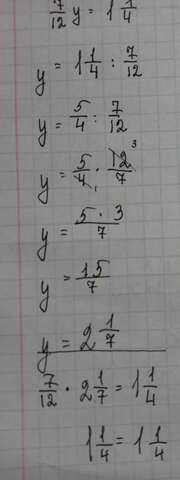 7/12 y = 1 1/4
y = 1 1/4 : 7/12
y = 5/4 : 7/12
y = 5/4 1 · 12/7 3
y = 5 · 3/7
y = 15/7
y = 2 1/7
7/12 · 2 1/7 = 1 1/4
1 1/4 = 1 1/4